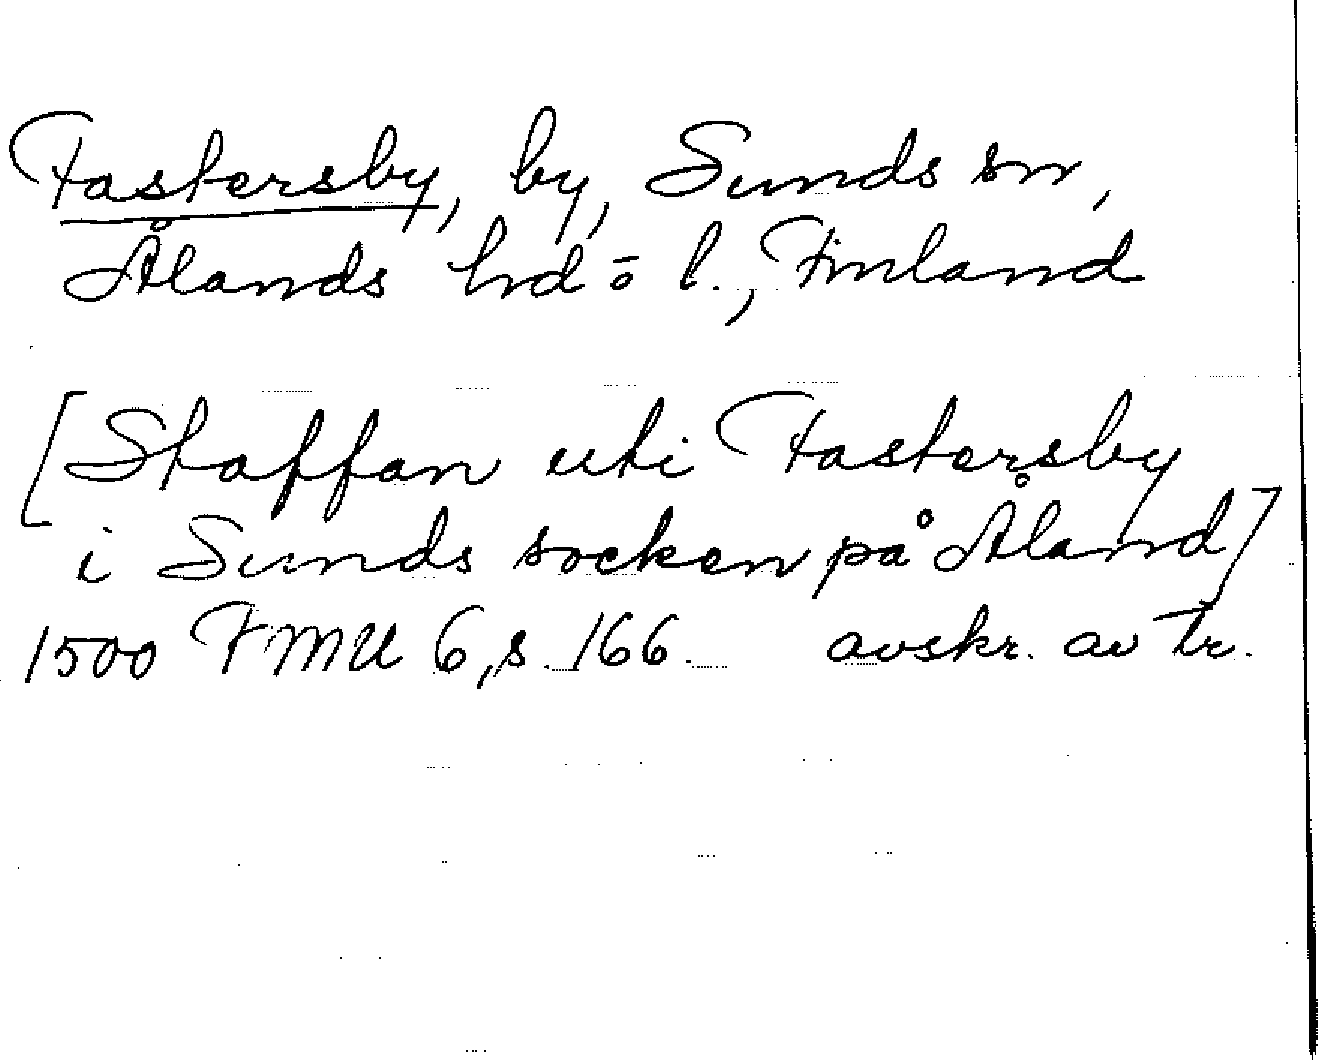 Fastersby, by, Sunds sn,
Ålands hd ō l., Finland
[Staffan uti Fastersby
i Sunds socken på Åland]
1500 FMU 6, s. 166. avskr. av tr.